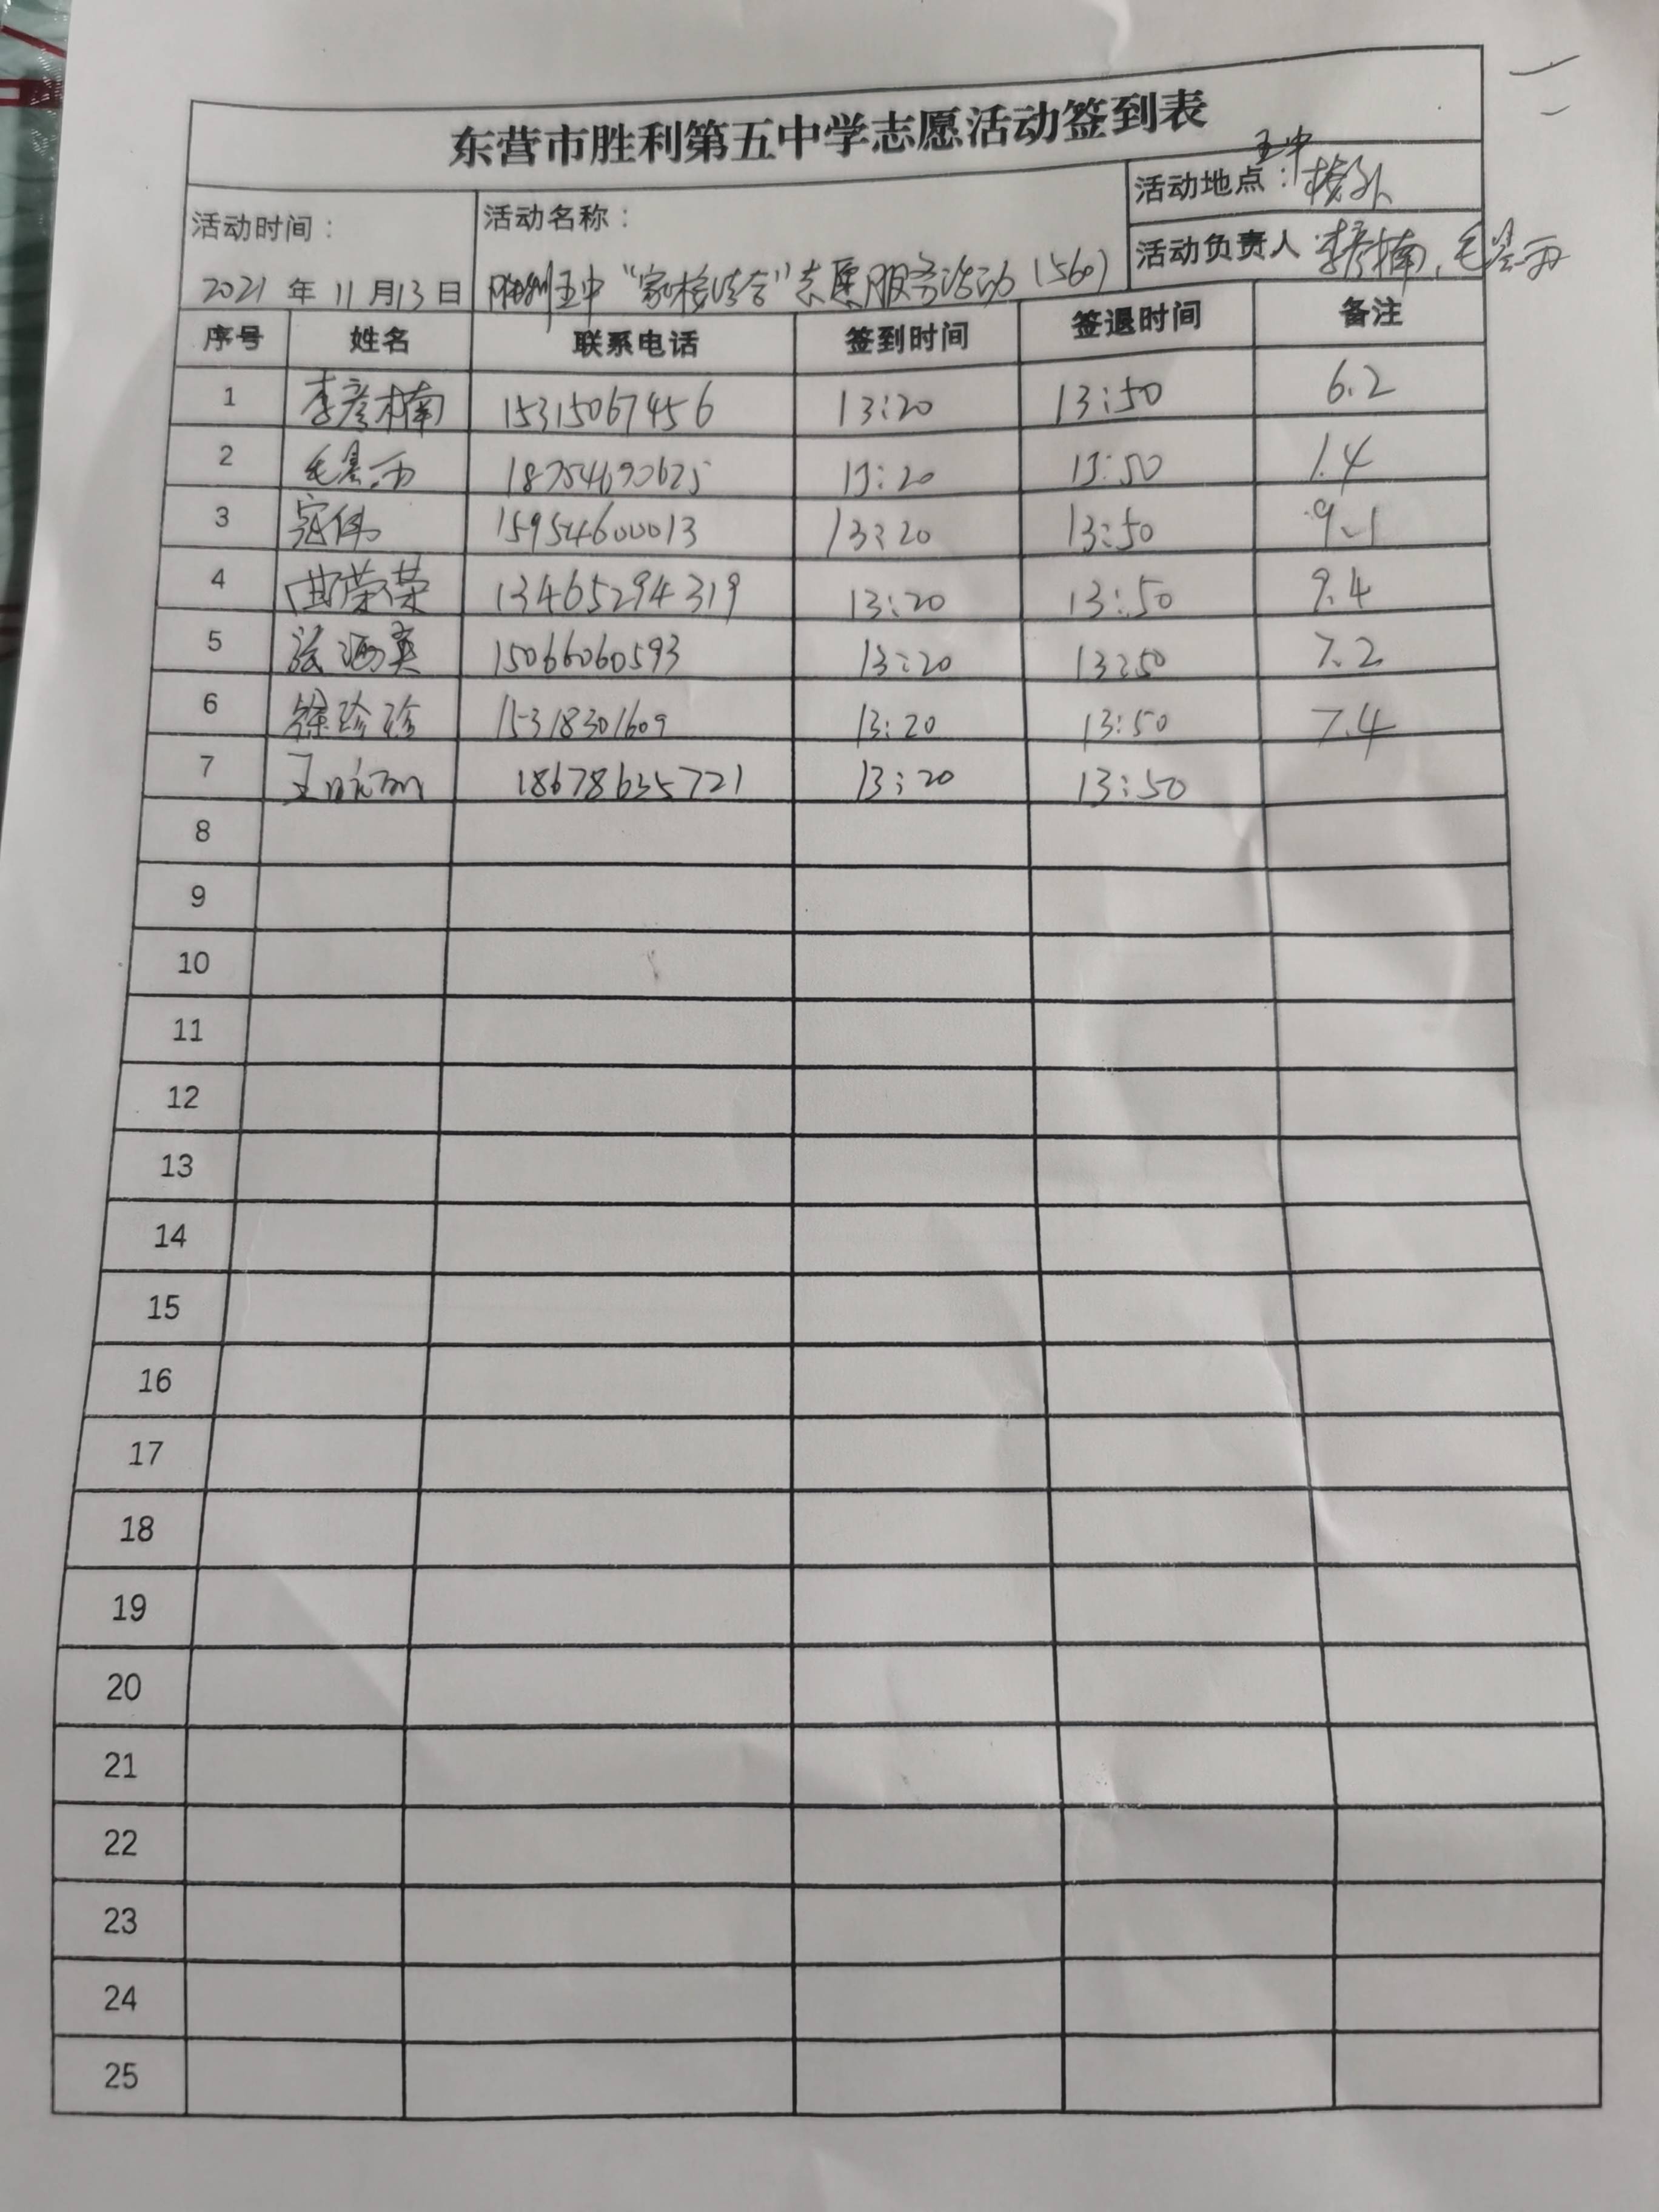 东营市胜利第五中学志愿活动签到表
活动时间：
2021 年 11 月 13 日
活动名称：
胜利五中“家校结合”志愿服务活动（560）
活动地点：五中校外
活动负责人 李彦楠、毛昱雨
序号 姓名 联系电话 签到时间 签退时间 备注
1 李彦楠 15315067456 13:20 13:50 6.2
2 毛昱雨 13:20 13:50 1.4
3 伟 15954600013 13:20 13:50 9.1
4 曲荣荣 13465294319 13:20 13:50 9.4
5 15066060593 13:20 13:50 7.2
6 徐珍珍 15318301609 13:20 13:50 7.4
7 王 18678635721 13:20 13:50
8
9
10
11
12
13
14
15
16
17
18
19
20
21
22
23
24
25